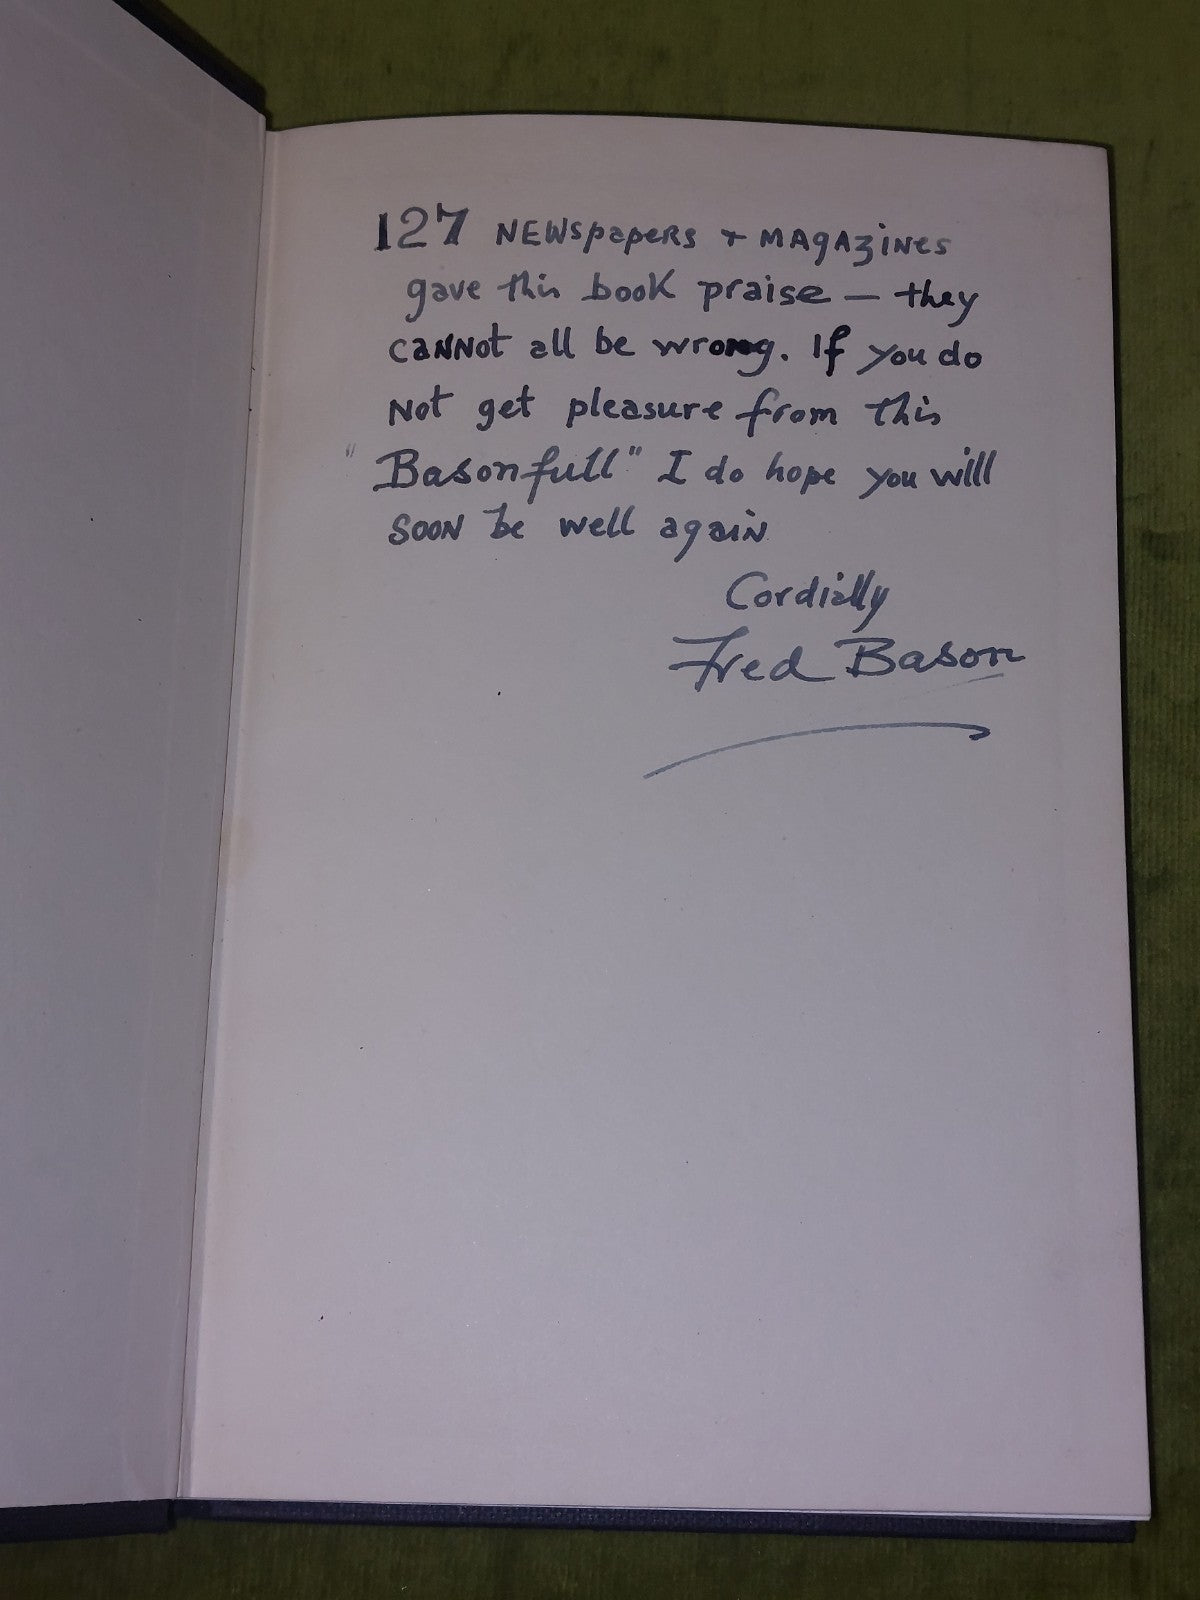 127 NEWSpapeRs + MAgAziNes
gave this book praise — they
caNNot all be wrong. If you do
Not get pleasure from this
"Basonfull" I do hope you will
sooN be well again
Cordially
Fred Bason